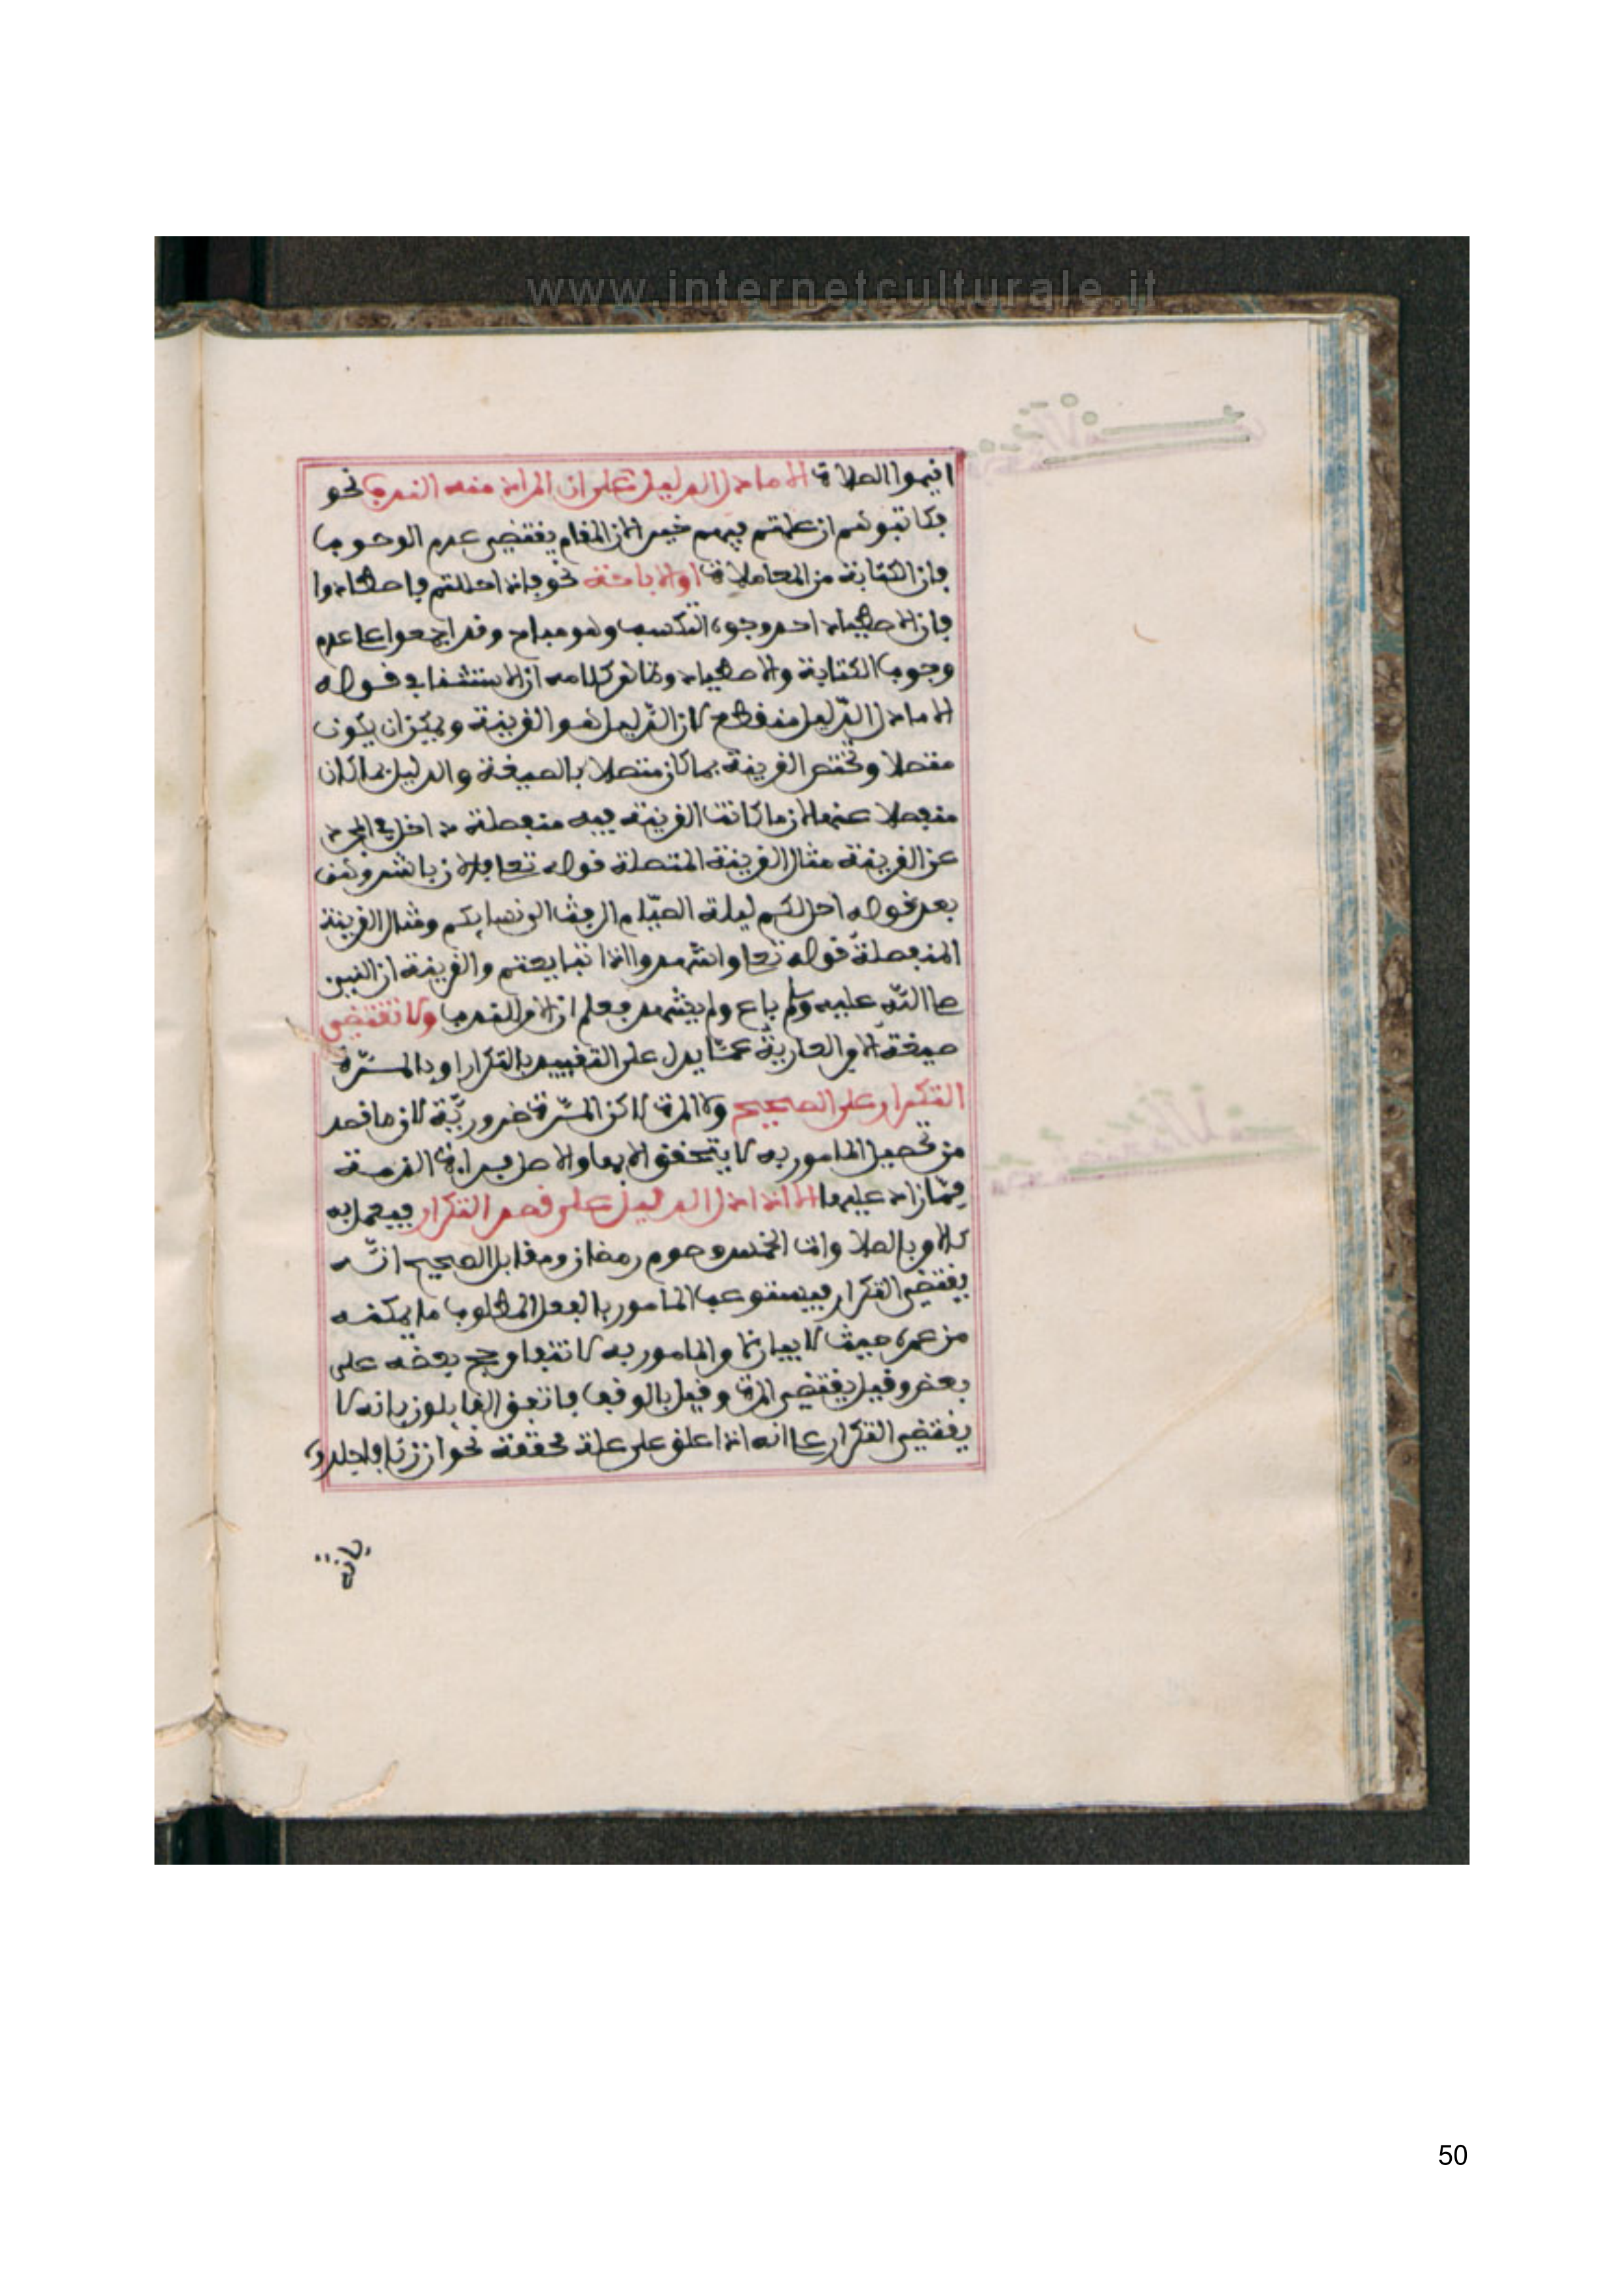 www.internetculturale.it
اقيموا الصلاة الا ما دل الدليل على ان المراد منه الندب نحو
فكاتبوهم ان علمتم فيهم خيرا لان المقام يقتضي عدم الوجوب
فان الكتابة من المعاملات او الاباحة نحو فاذا حللتم فاصطادوا
فان الاصطياد احد وجوه التكسب وهو مباح وقد اجمعوا على عدم
وجوب الكتابة والاصطياد وظاهر كلامه ان الاستثناء في قوله
الا ما دل الدليل منقطع لان الدليل هو القرينة ويمكن ان يكون
متصلا وتختص القرينة بما كان متصلا بالصيغة والدليل بما كان
منفصلا عنها لان ما كانت القرينة فيه منفصلة داخل في المجرد
عن القرينة مثال القرينة المتصلة قوله تعالى فالان باشروهن
بعد قوله احل لكم ليلة الصيام الرفث الى نسايكم ومثال القرينة
المنفصلة قوله تعالى واشهدوا اذا تبايعتم والقرينة ان النبي
صلى الله عليه وسلم باع ولم يشهد فعلم ان الامر للندب ولا تقتضي
صيغة الامر العارية عما يدل على التقييد بالتكرار او بالمرة
التكرار على الصحيح ولا المرة لاكن المرة ضرورية لان ما قصد
من تحصيل المامور به لا يتحقق الا بها والاصل براءة الذمة
مما زاد عليها الا اذا دل الدليل على قصد التكرار فيعمل به
كالامر بالصلاوات الخمس وصوم رمضان ومقابل الصحيح انه
يقتضي التكرار فيستوعب المامور بالفعل المطلوب ما يمكنه
من عمره حيث لا بيان والمامور به لا تنجا وجح بعضه على
بعض وقيل يقتضي المرة وقيل بالوقف فاتفق القايلون بانه لا
يقتضي التكرار على انه اذا علق على علة محققة نحو ان زنا فاجلدوه
فانه
50